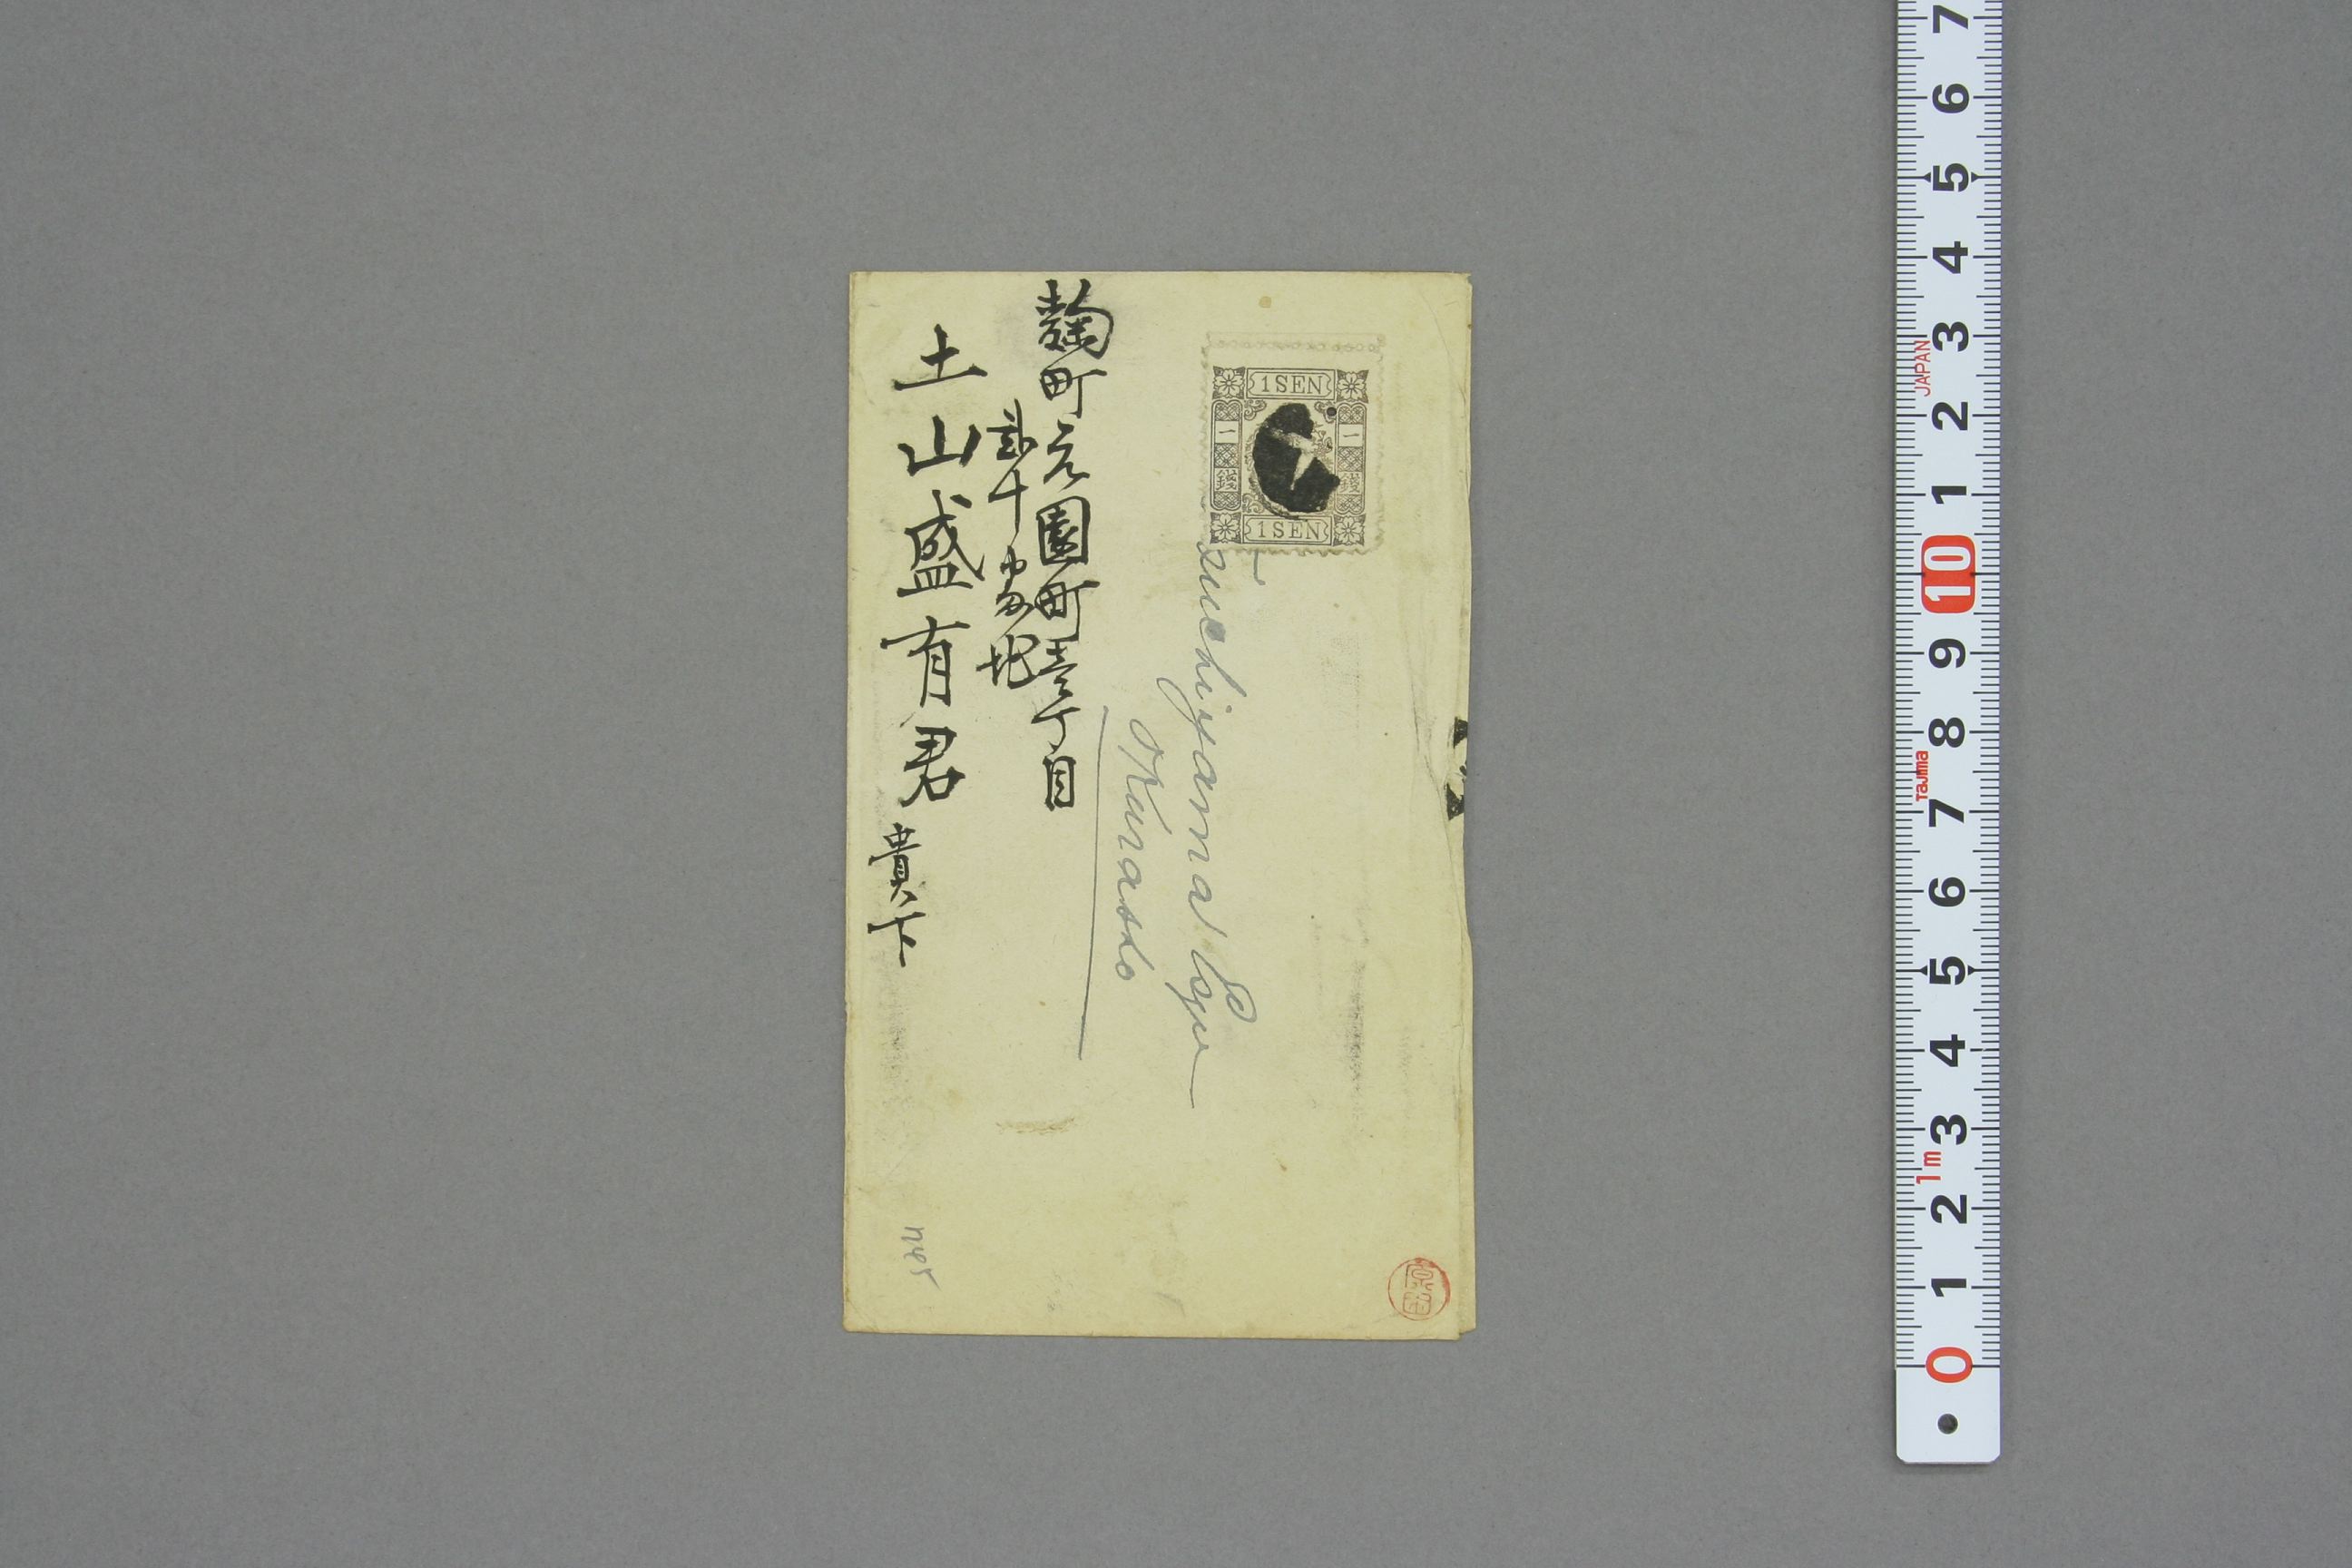 麹町元園町壱丁目
弐十番地
土山盛有君
貴下
Tsuchiyama Esqr
Okurasho
1 SEN
一 一
銭 銭
1 SEN
7
6
5
4
3
JAPAN
2
1
10
9
8
Tajima
7
6
5
4
3
1m
2
1
0